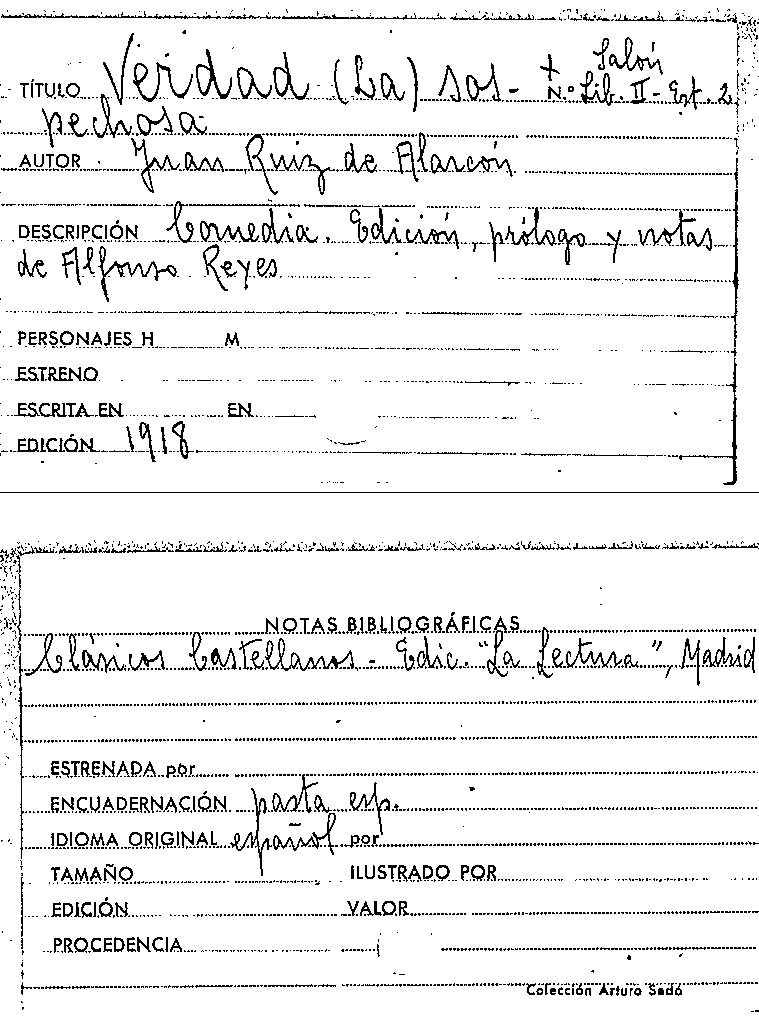 Salón
TÍTULO Verdad (La) sos- + N.º Lib. II - Est. 2
pechosa
AUTOR Juan Ruiz de Alarcón
DESCRIPCIÓN Comedia. Edición, prólogo y notas
de Alfonso Reyes
PERSONAJES H M
ESTRENO
ESCRITA EN EN
EDICIÓN 1918
NOTAS BIBLIOGRÁFICAS
Clásicos Castellanos - Edic. "La Lectura", Madrid
ESTRENADA por
ENCUADERNACIÓN pasta esp.
IDIOMA ORIGINAL español por
TAMAÑO ILUSTRADO POR
EDICIÓN VALOR
PROCEDENCIA
Colección Arturo Sedó